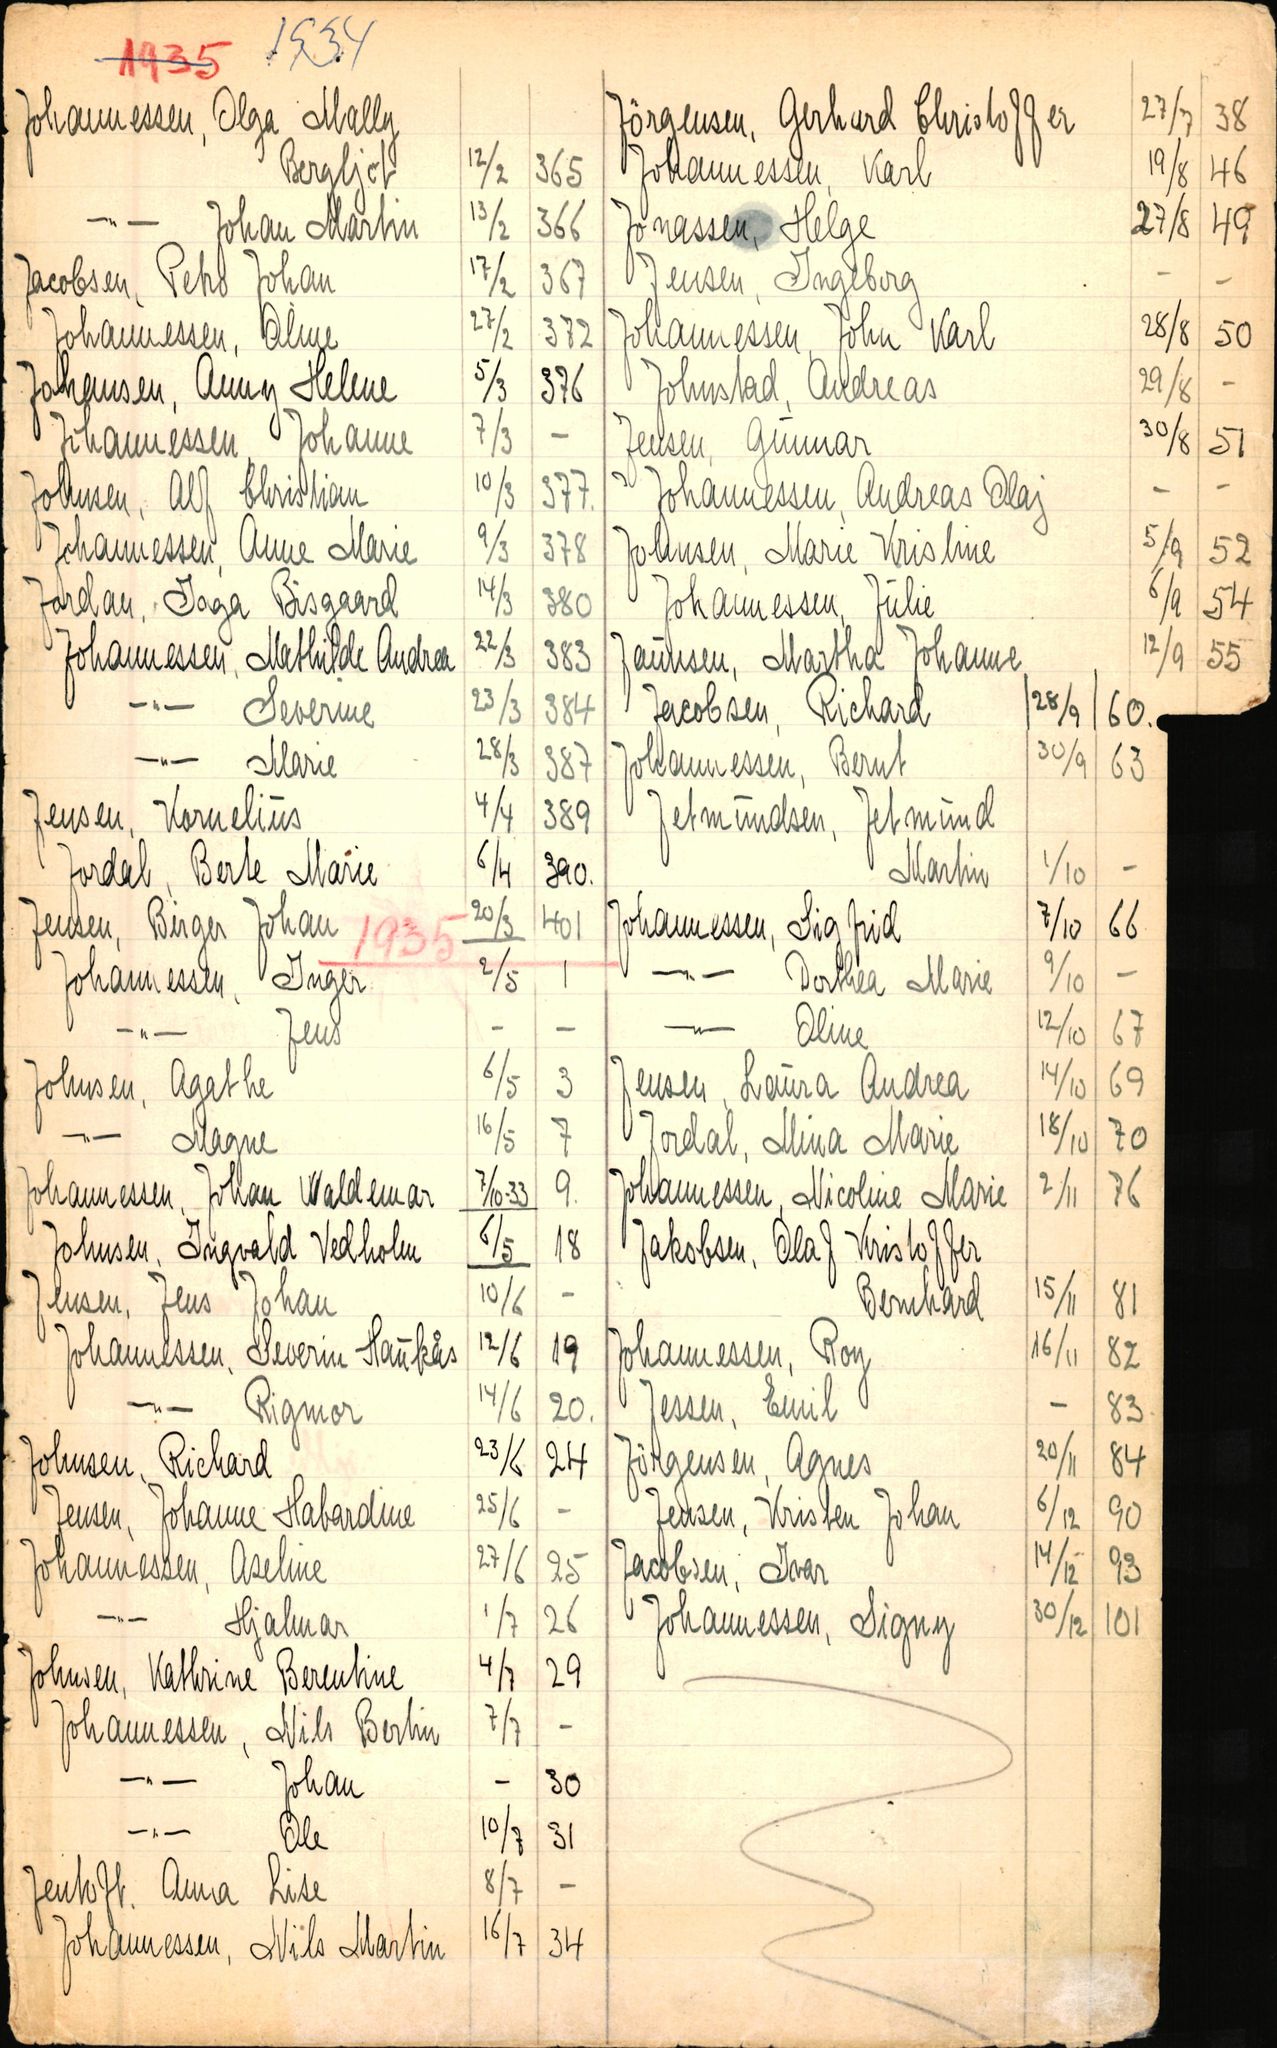 1935 1934
Johannessen, Olga Mally
Bergljot 12/2 365
—"— Johan Martin 13/2 366
Jacobsen, Petro Johan 17/2 367
Johannessen, Oline 27/2 372
Johansen, Anny Helene 5/3 376
Johannessen, Johanne 7/3 –
Johnsen, Alf Christian 10/3 377.
Johannessen, Anne Marie 9/3 378
Jordan, Inga Bisgaard 14/3 380
Johannessen, Mathilde Andrea 22/3 383
—"— Severine 23/3 384
—"— Marie 28/3 387
Jensen, Kornelius 4/4 389
Jordal, Berte Marie 6/4 390.
Jensen, Birger Johan 20/3 401
1935
Johannessen, Inger 2/5 1
—"— Jens – –
Johnsen, Agathe 6/5 3
—"— Magne 16/5 7
Johannessen, Johan Waldemar 7/10-33 9.
Johnsen, Ingvald Vedholm 6/5 18
Jensen, Jens Johan 10/6 –
Johannessen, Severin Haukås 12/6 19
—"— Rigmor 14/6 20.
Johnsen, Richard 23/6 24
Jensen, Johanne Habardine 25/6 –
Johannessen, Aseline 27/6 25
—"— Hjalmar 1/7 26
Johnsen, Kathrine Berentine 4/7 29
Johannessen, Nils Bertin 7/7 –
—"— Johan – 30
—"— Ole 10/7 31
Jentoft, Anna Lise 8/7 –
Johannessen, Nils Martin 16/7 34
Jörgensen, Gerhard Christoffer 27/7 38
Johannessen, Karl 19/8 46
Jonassen, Helge 27/8 49
Jensen, Ingeborg – –
Johannessen, John Karl 28/8 50
Johnstad, Andreas 29/8 –
Jensen, Gunnar 30/8 51
Johannessen, Andreas Olaj – –
Johnsen, Marie Kristine 5/9 52
Johannessen, Julie 6/9 54
Jaunsen, Martha Johanne 12/9 55
Jacobsen, Richard 28/9 60.
Johannessen, Bernt 30/9 63
Jetmundsen, Jetmund
Martin 1/10 –
Johannessen, Sigfrid 7/10 66
—"— Dorthea Marie 9/10 –
—"— Oline 12/10 67
Jensen, Laura Andrea 14/10 69
Jordal, Mina Marie 18/10 70
Johannessen, Nicoline Marie 2/11 76
Jakobsen, Olaf Kristoffer
Bernhard 15/11 81
Johannessen, Roy 16/11 82
Jessen, Emil – 83
Jörgensen, Agnes 20/11 84
Jensen, Kristen Johan 6/12 90
Jacobsen, Ivar 14/12 93
Johannessen, Signy 30/12 101